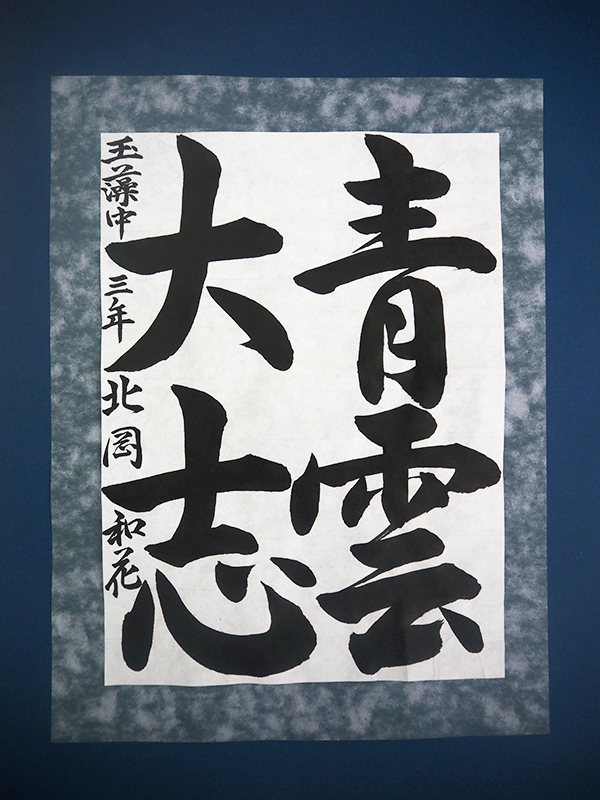 青雲
大志
玉藻中 三年 北岡 和花